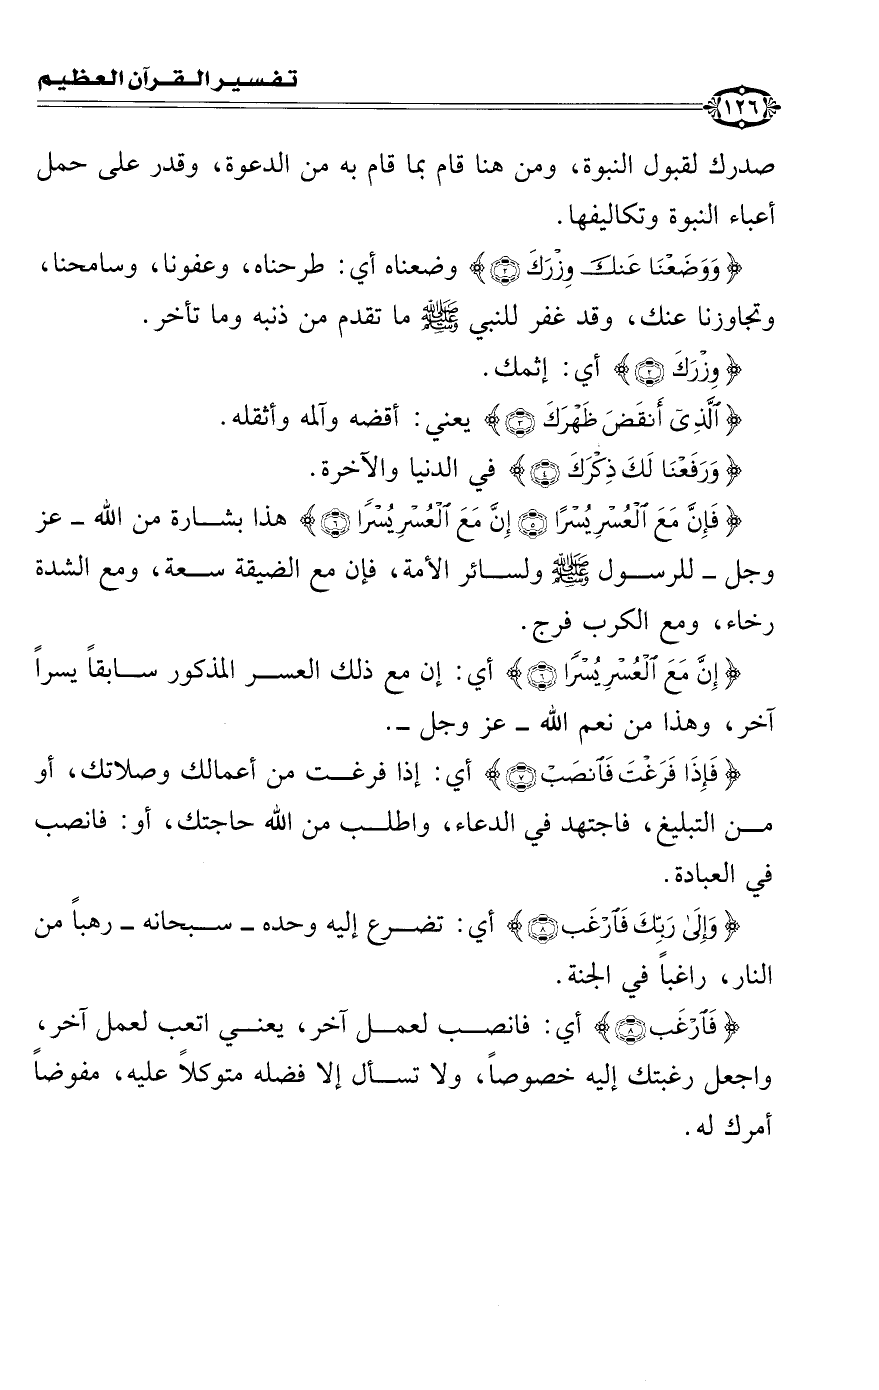 تفسير القرآن العظيم
١٢٦
صدرك لقبول النبوة، ومن هنا قام بما قام به من الدعوة، وقدر على حمل
أعباء النبوة وتكاليفها.
﴿وَوَضَعْنَا عَنكَ وِزْرَكَ ٢﴾ وضعناه أي: طرحناه، وعفونا، وسامحنا،
وتجاوزنا عنك، وقد غفر للنبي ﷺ ما تقدم من ذنبه وما تأخر.
﴿وِزْرَكَ ٢﴾ أي: إثمك.
﴿ٱلَّذِىٓ أَنقَضَ ظَهْرَكَ ٣﴾ يعني: أقضه وآلمه وأثقله.
﴿وَرَفَعْنَا لَكَ ذِكْرَكَ ٤﴾ في الدنيا والآخرة.
﴿فَإِنَّ مَعَ ٱلْعُسْرِ يُسْرًا ٥ إِنَّ مَعَ ٱلْعُسْرِ يُسْرًا ٦﴾ هذا بشارة من الله ـ عز
وجل ـ للرسول ﷺ ولسائر الأمة، فإن مع الضيقة سعة، ومع الشدة
رخاء، ومع الكرب فرج.
﴿إِنَّ مَعَ ٱلْعُسْرِ يُسْرًا ٦﴾ أي: إن مع ذلك العسر المذكور سابقاً يسراً
آخر، وهذا من نعم الله ـ عز وجل ـ.
﴿فَإِذَا فَرَغْتَ فَٱنصَبْ ٧﴾ أي: إذا فرغت من أعمالك وصلاتك، أو
من التبليغ، فاجتهد في الدعاء، واطلب من الله حاجتك، أو: فانصب
في العبادة.
﴿وَإِلَىٰ رَبِّكَ فَٱرْغَب ٨﴾ أي: تضرع إليه وحده ـ سبحانه ـ رهباً من
النار، راغباً في الجنة.
﴿فَٱرْغَب ٨﴾ أي: فانصب لعمل آخر، يعني اتعب لعمل آخر،
واجعل رغبتك إليه خصوصاً، ولا تسأل إلا فضله متوكلاً عليه، مفوضاً
أمرك له.